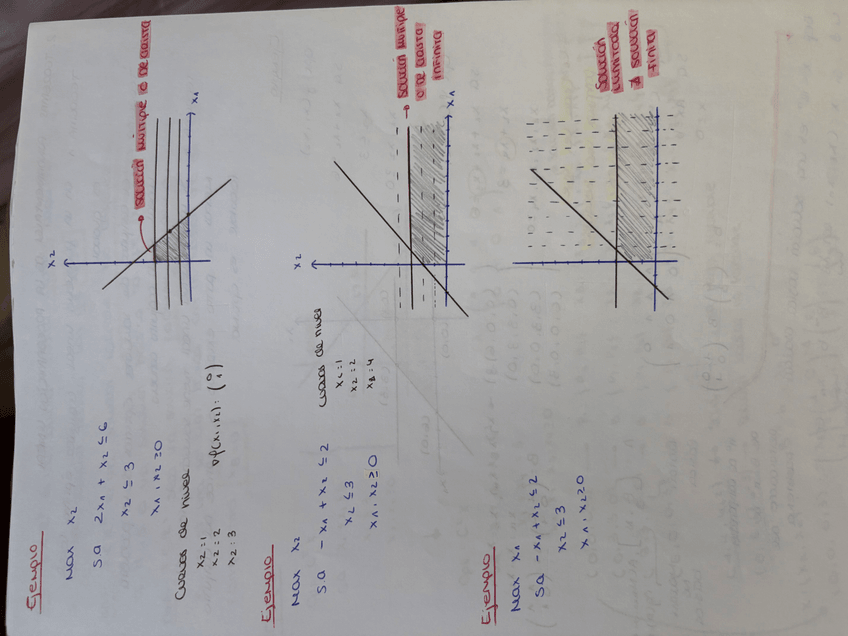 Ejemplo
Max x2
s.a 2x1 + x2 ≤ 6
x2 ≤ 3
x1, x2 ≥ 0
Curvas de nivel
x2 = 1
x2 = 2
x2 = 3
∇f(x1, x2): (0 1)
x2
x1
solución múltiple o de arista
Ejemplo
Max x2
s.a - x1 + x2 ≤ 2
x2 ≤ 3
x1, x2 ≥ 0
Curvas de nivel
x2 = 1
x2 = 2
x2 = 4
x2
x1
solución múltiple
o de arista
infinita
Ejemplo
Max x1
s.a - x1 + x2 ≤ 2
x2 ≤ 3
x1, x2 ≥ 0
Solución
ilimitada
∄ solución
finita